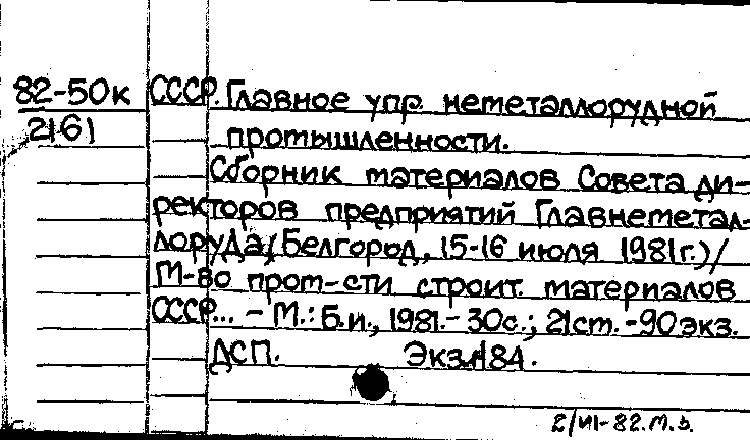 82-50к СССР. Главное упр. неметаллорудной
2161 промышленности.
Сборник материалов Совета ди-
ректоров предприятий Главнеметал-
лоруда, (Белгород, 15-16 июля 1981 г.) /
М-во пром-сти строит. материалов
СССР... - М.: Б.и., 1981. - 30с.; 21ст. - 90экз.
ДСП. Экз. 84.
2/VII-82.